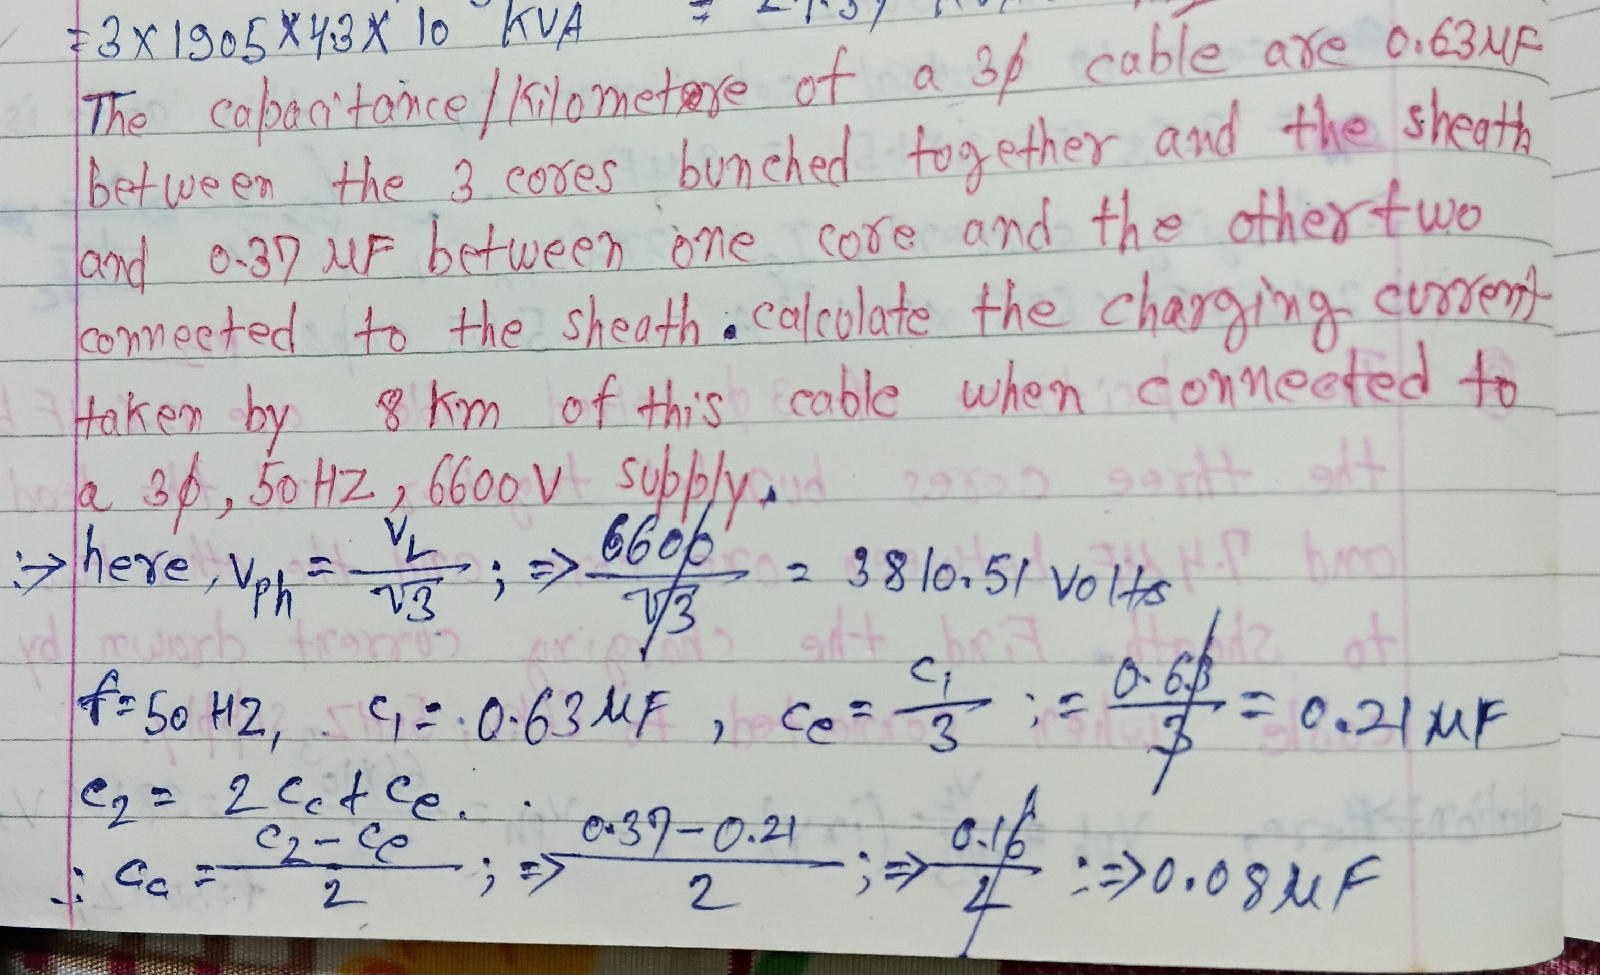 =3×1905×43×10 KVA =
The capacitance/Kilometere of a 3φ cable are 0.63μF
between the 3 cores bunched together and the sheath
and 0.37 μF between one core and the other two
connected to the sheath. calculate the charging current
taken by 8 Km of this cable when connected to
a 3φ, 50 HZ, 6600V supply.
:→ here, Vph = VL/√3 ; => 6600/√3 = 3810.51 Volts
f=50 HZ, C1 = 0.63 μF, Ce = C1/3 ; = 0.63/3 = 0.21 μF
C2 = 2Cc + Ce.
∴ Cc = C2-Ce/2 ; => 0.37-0.21/2 ; => 0.16/2 ; => 0.08 μF